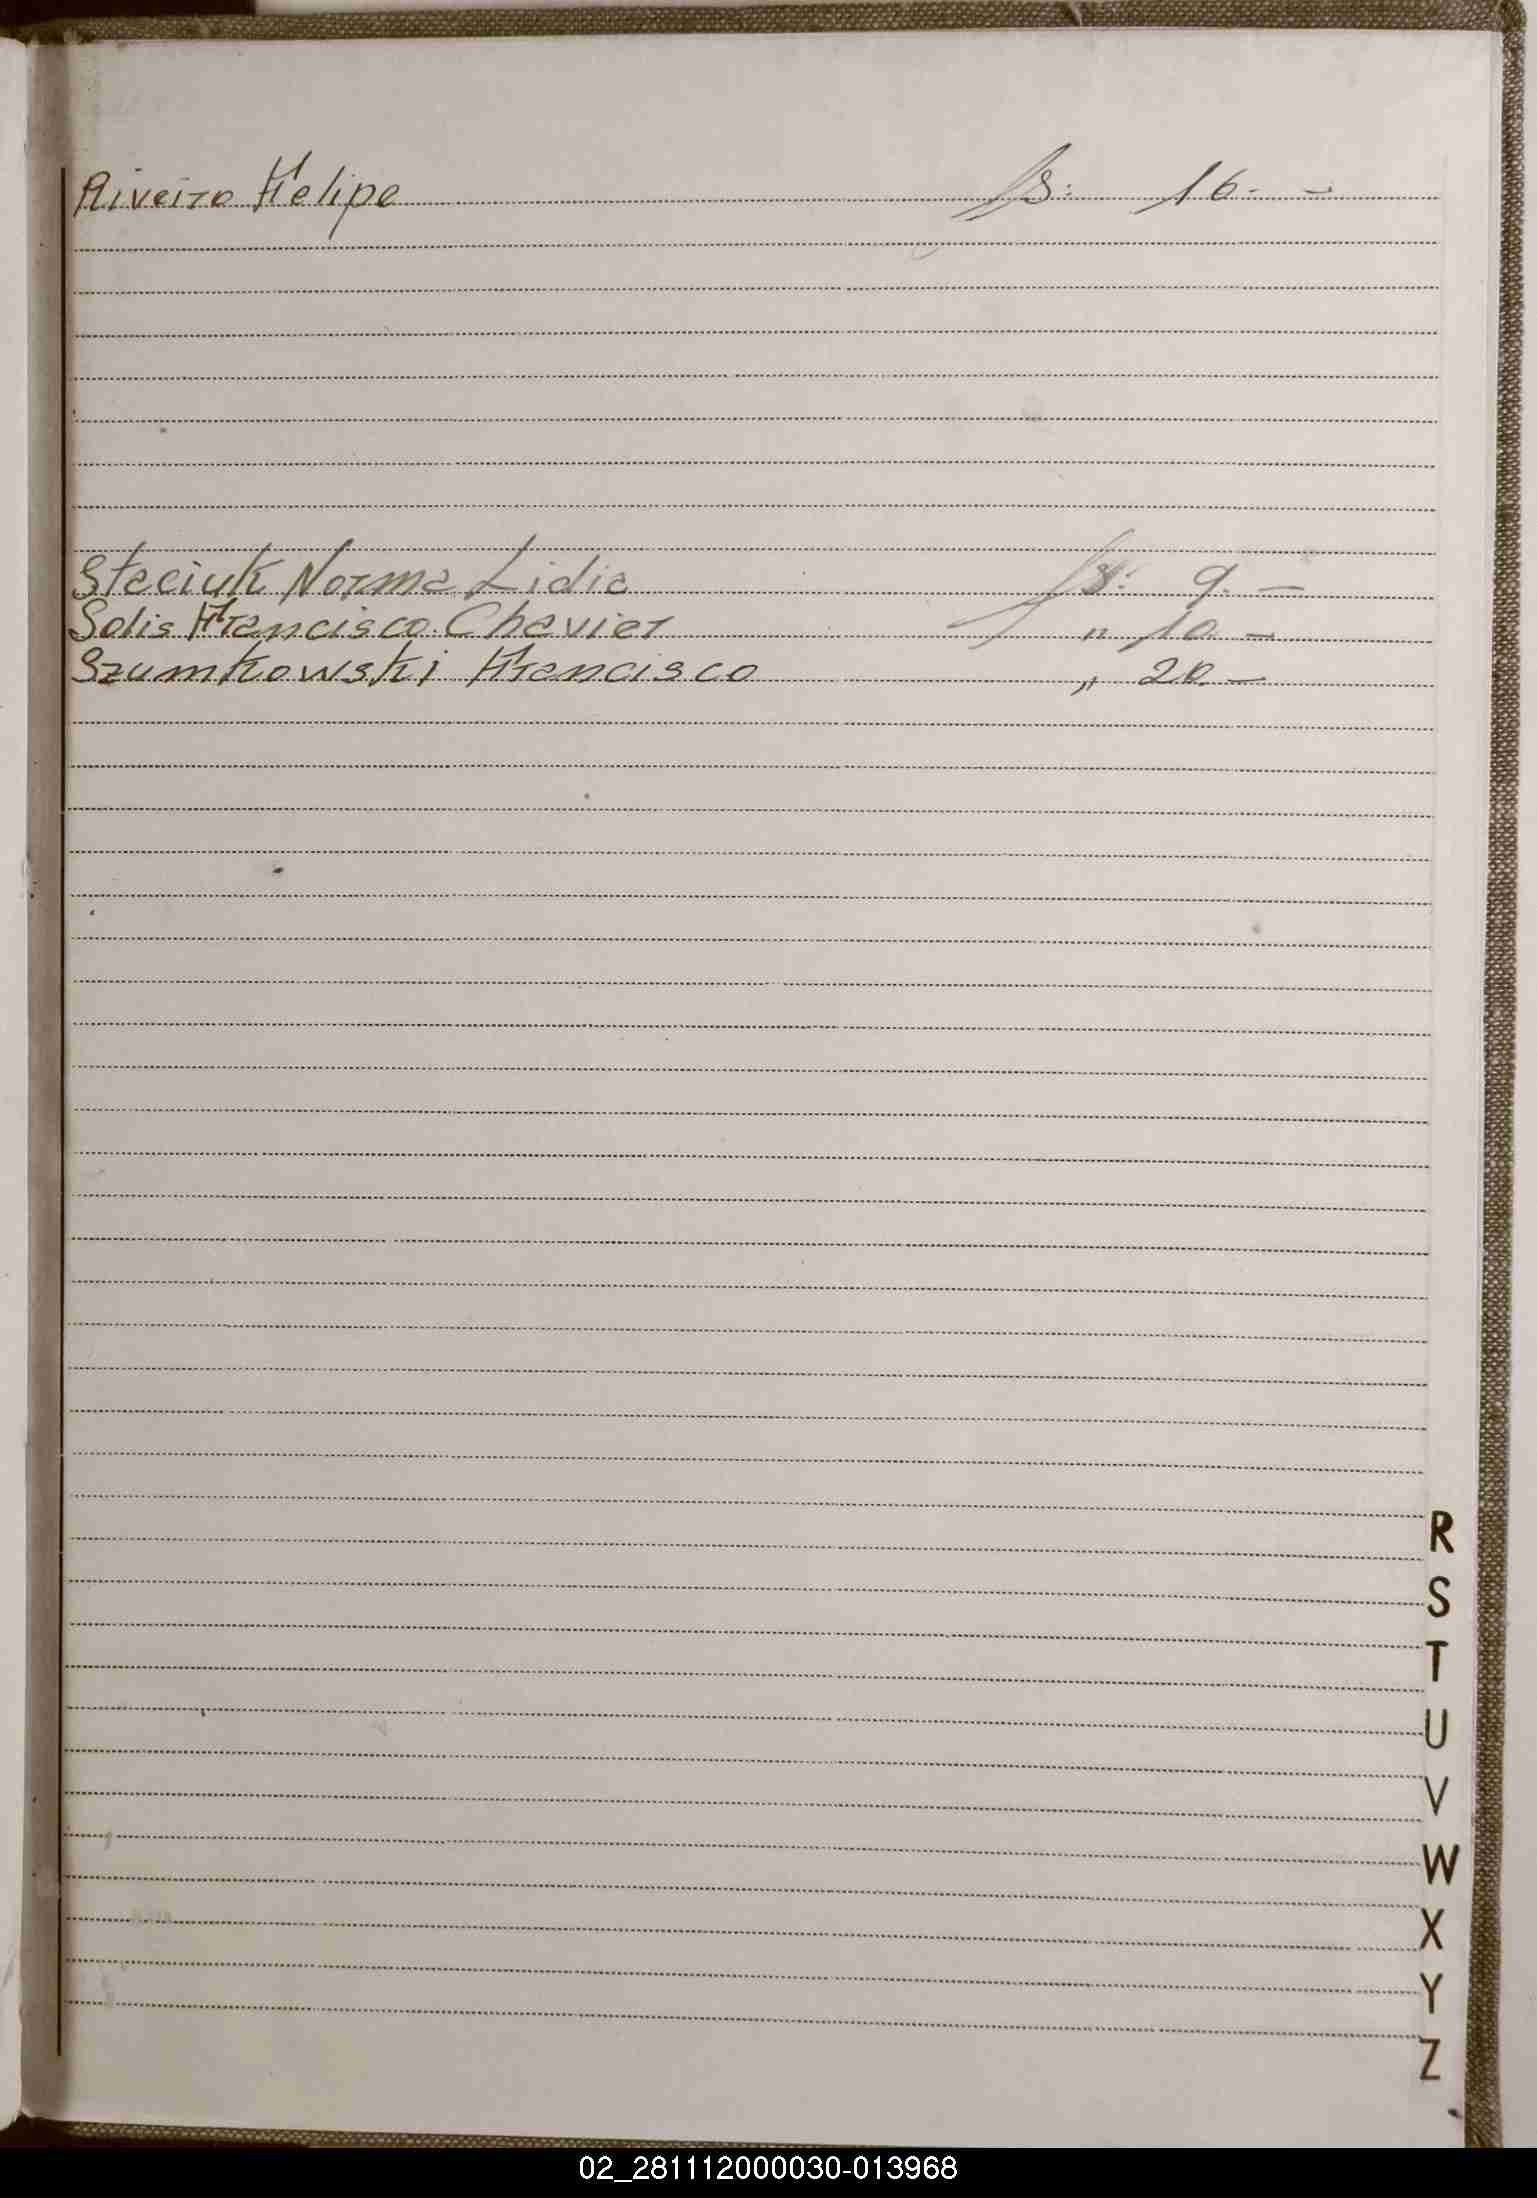 Riveiro Felipe fs: 16. -
Staciuk Norma Lidia fs: 9. -
Solis Francisco Chavier „ 10 -
Szumkowski Francisco „ 20. -
R
S
T
U
V
W
X
Y
Z
02_281112000030-013968